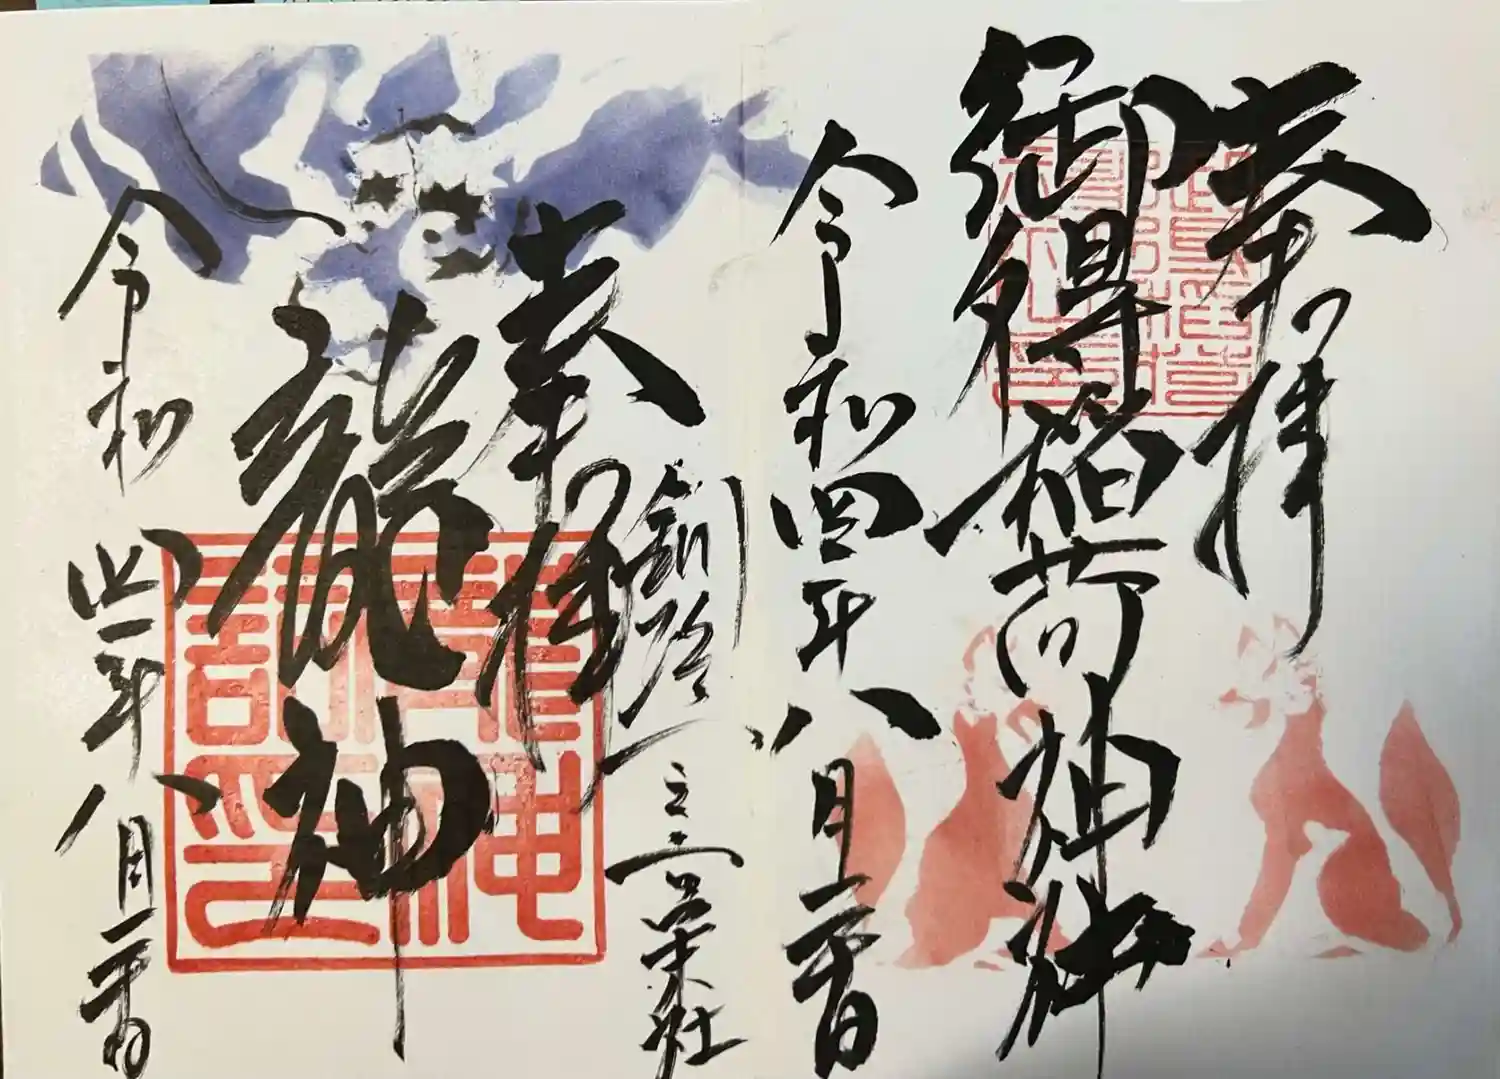 奉拝
御得稲荷神社
令和四年八月二十日
釧路一之宮末社
奉拝
龍神
令和四年八月二十日